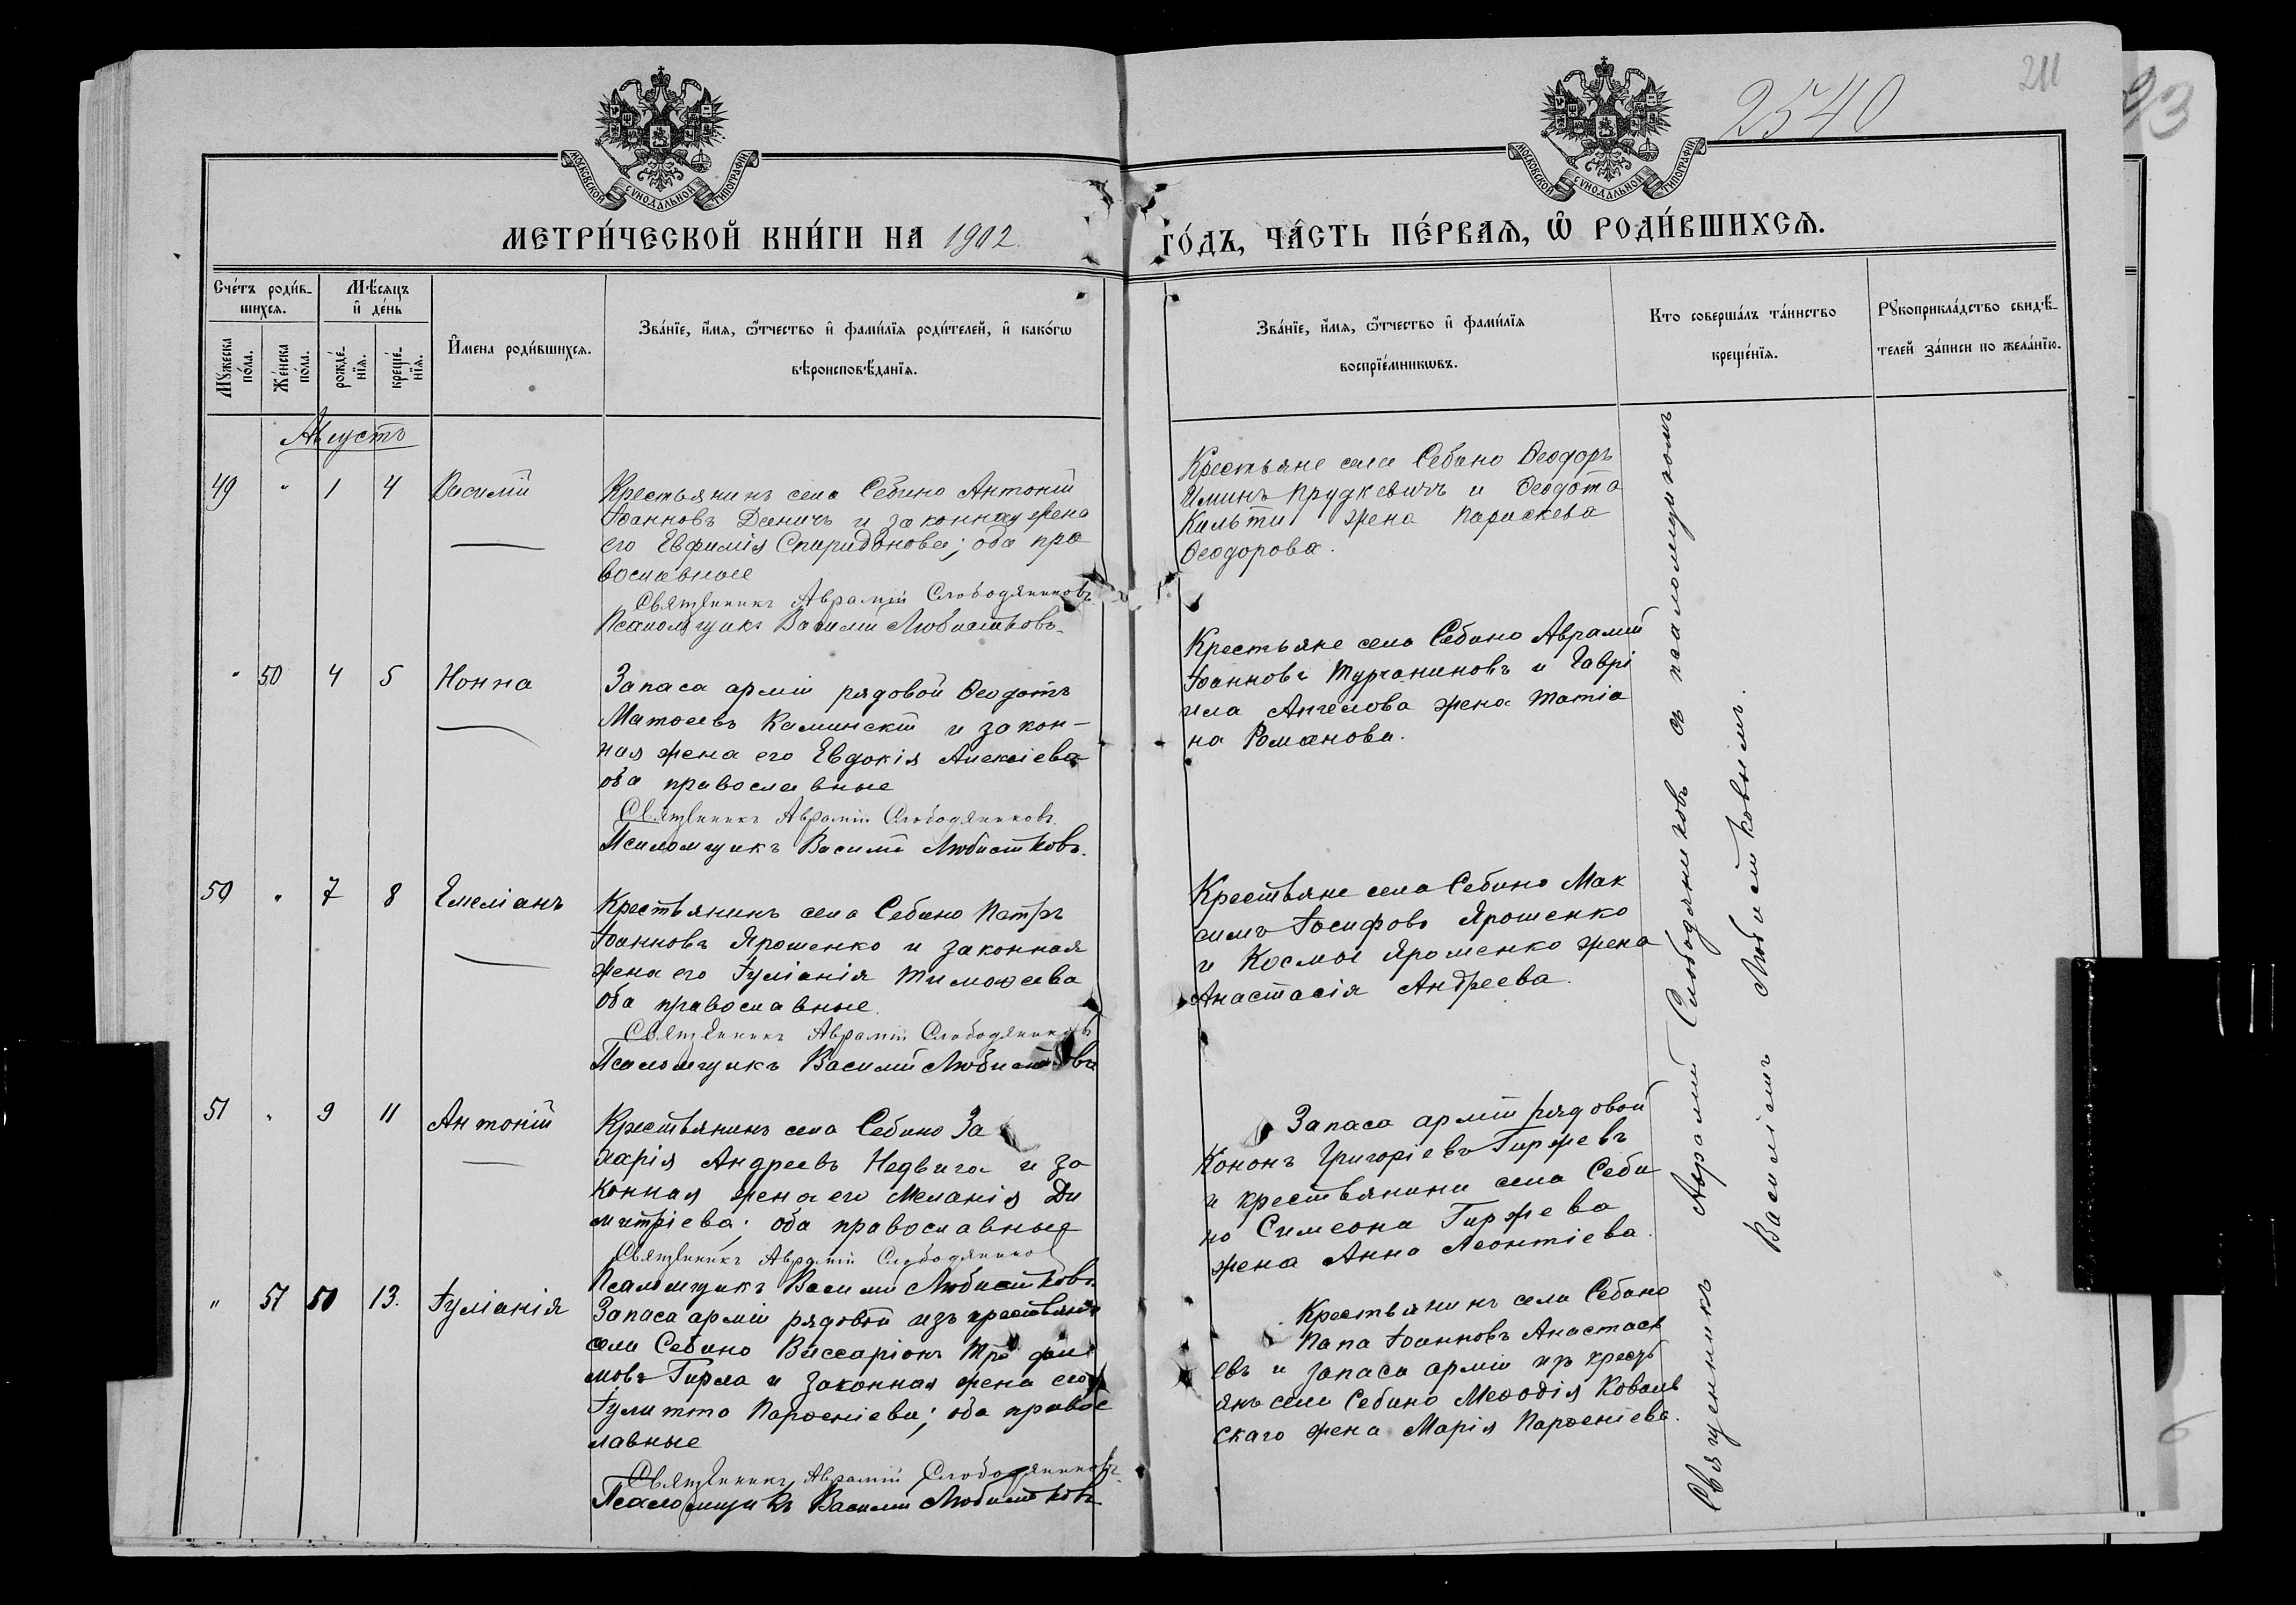 2540
211
МОСКОВСКОЙ СУНОДАЛЬНОЙ ТИПОГРАФІИ
МОСКОВСКОЙ СУНОДАЛЬНОЙ ТИПОГРАФІИ
МЕТРИ́ЧЕСКОЙ КНИ́ГИ НА 1902
ГО́ДЪ, ЧА́СТЬ ПЕ́РВАЯ, Ѡ РОДИ́ВШИХСЯ.
Сче́тъ роди́в-
шихся.
Мꙋжеска по́ла.
Же́нска по́ла.
Мѣ́сяцъ
и҆ де́нь
рожде́-
нїя.
креще́-
нїя.
И҆мена роди́вшихся.
Зва́нїе, и҆́мя, ѻ҆́тчество и҆ фами́лїя роди́телей, и҆ како́гѡ
вѣроисповѣ́данїя.
Зва́нїе, и҆́мя, ѻ҆́тчество и҆ фами́лїя
воспрїе́мникѡвъ.
Кто соверша́лъ та́инство
креще́нїя.
Рꙋкоприкла́дство свидѣ́-
телей за́писи по жела́нїю.
Августъ
49 " 1 4 Василій
Крестьянинъ села Себино Антоній
Іоанновъ Деничъ и законная жена
его Евфимія Спиридонова; оба пра
вославные
Священникъ Аврамій Слободяниковъ
Псаломщикъ Василій Любистковъ.
Крестьяне села Себино Ѳеодоръ
Прудкевичъ и Ѳеодота
жена Параскева
Ѳеодорова.
" 50 4 5 Нонна
Запаса арміи рядовой Ѳеодотъ
Матѳеевъ Каминскій и закон-
ная жена его Евдокія Алексіева
оба православные
Священникъ Аврамій Слободяниковъ
Псаломщикъ Василій Любистковъ.
Крестьяне села Себино Аврамій
Іоанновъ Турчаниновъ и Гаврі
ила Ангелова жена Татіа
на Романова.
50 " 7 8 Емеліанъ
Крестьянинъ села Себино Петръ
Іоанновъ Ярошенко и законная
жена его Іуліанія Тимоѳеева
оба православные.
Священникъ Аврамій Слободяниковъ
Псаломщикъ Василій Любистковъ
Крестьяне села Себино Мак
симъ Іосифовъ Ярошенко
и Космы Ярошенко жена
Анастасія Андреева.
51 " 9 11 Антоній
Крестьянинъ села Себино За
харія Андреевъ Недвига и за
конная жена его Меланія Ди
митріева; оба православные
Священникъ Аврамій Слободяников
Псаломщикъ Василій Любистковъ.
Запаса арміи рядовой
Кононъ Григоріевъ Гиржевъ
и крестьянина села Себи
но Симеона Гиржева
жена Анна Леонтіева.
" 51 50 13. Іуліанія
Запаса арміи рядовой изъ крестьянъ
села Себино Виссаріонъ Тро фи
мовъ Гирла и законная жена его
Іулитта Парѳеніева; оба правос
лавные
Священникъ Аврамій Слободяниковъ
Псаломщикъ Василій Любистковъ
Крестьянинъ села Себино
Папа Іоанновъ Анастась
евъ и запаса арміи изъ кресть
янъ села Себино Меѳодія Коваль
скаго жена Марія Парѳеніева.
Священникъ Аврамій Слободяниковъ съ псаломщикомъ
Василіемъ Любистковымъ.